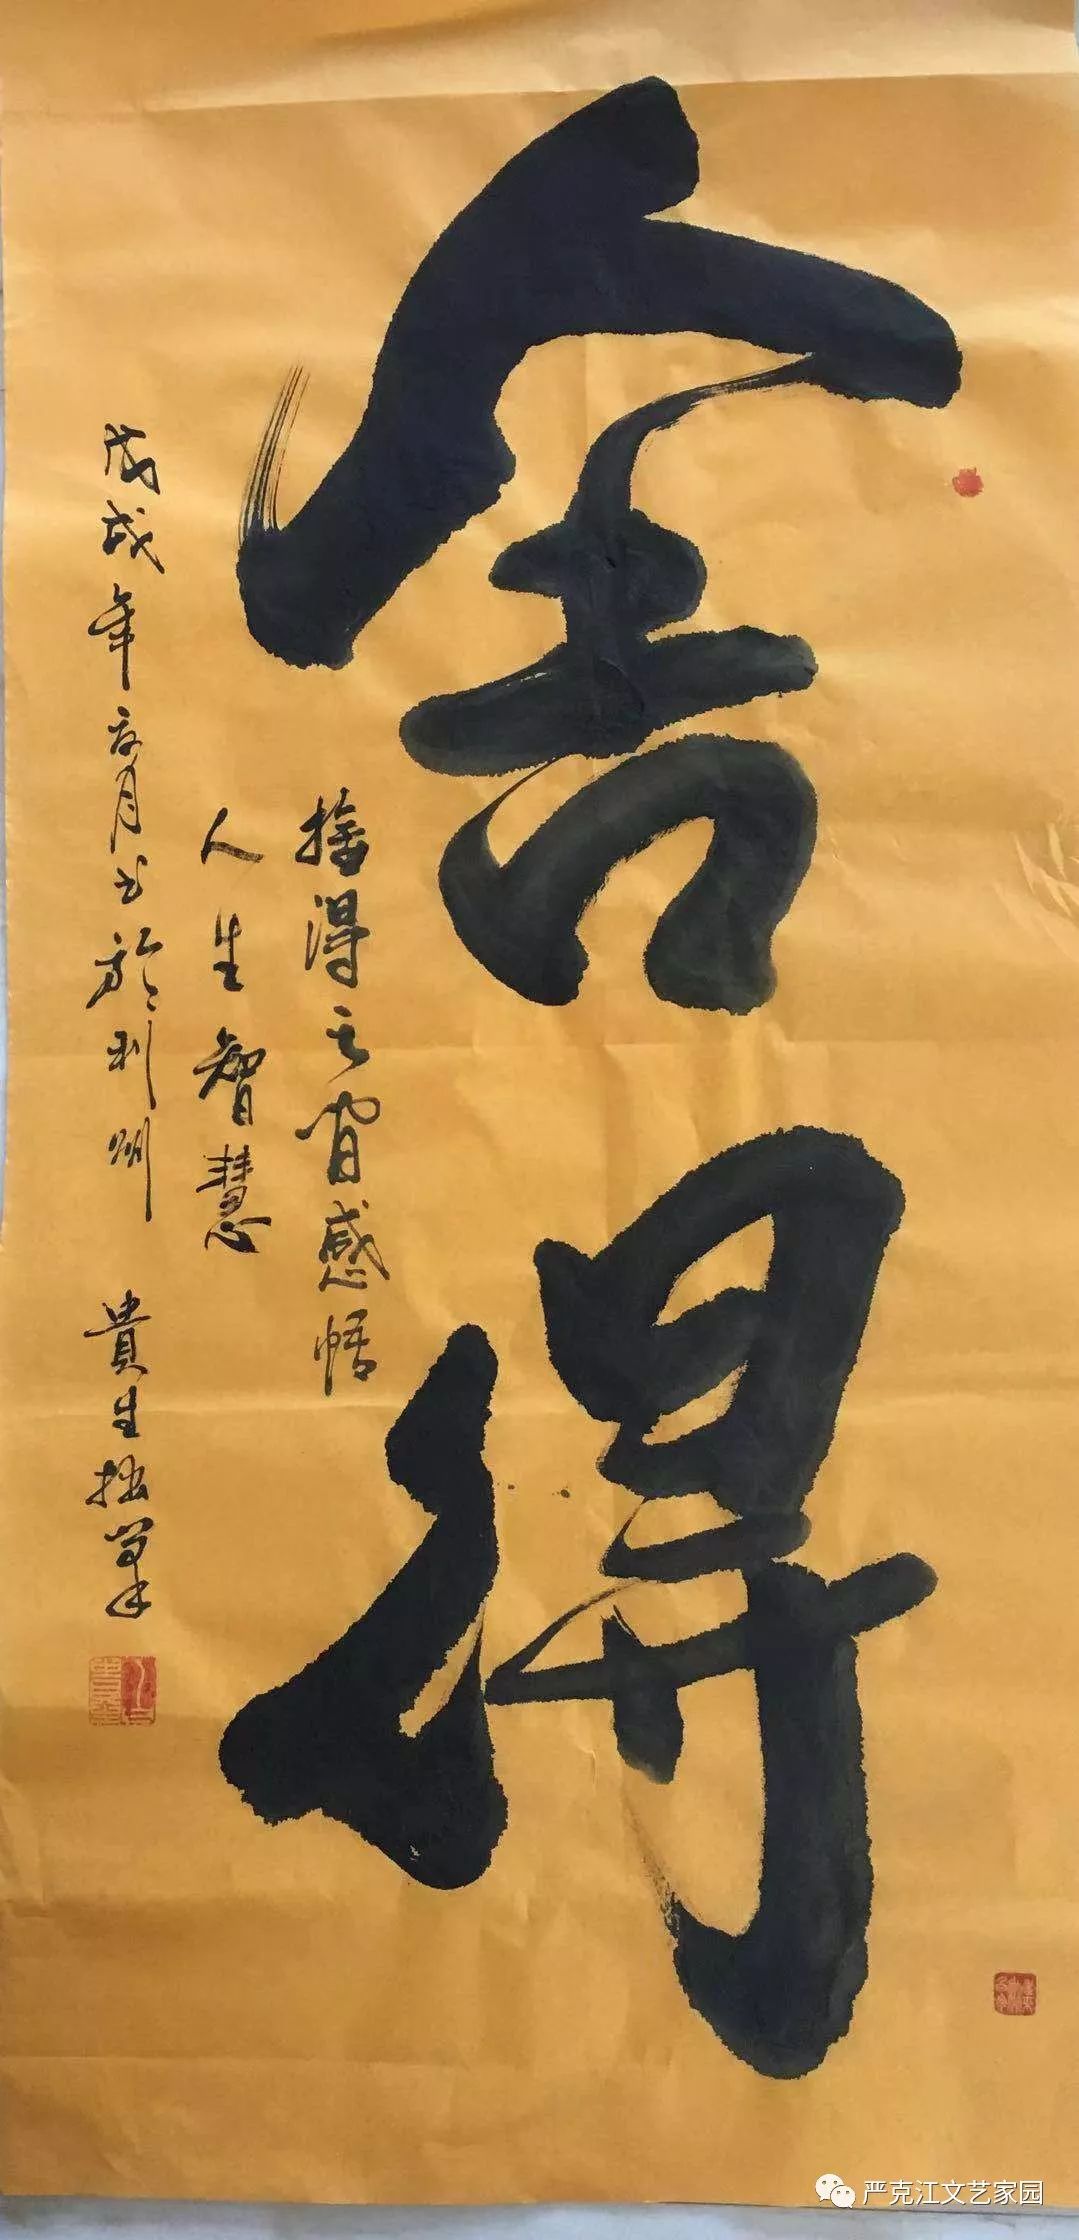 舍得
捨得之间感悟
人生智慧
戊戌年 月书於利州 貴生拙笔
严克江文艺家园